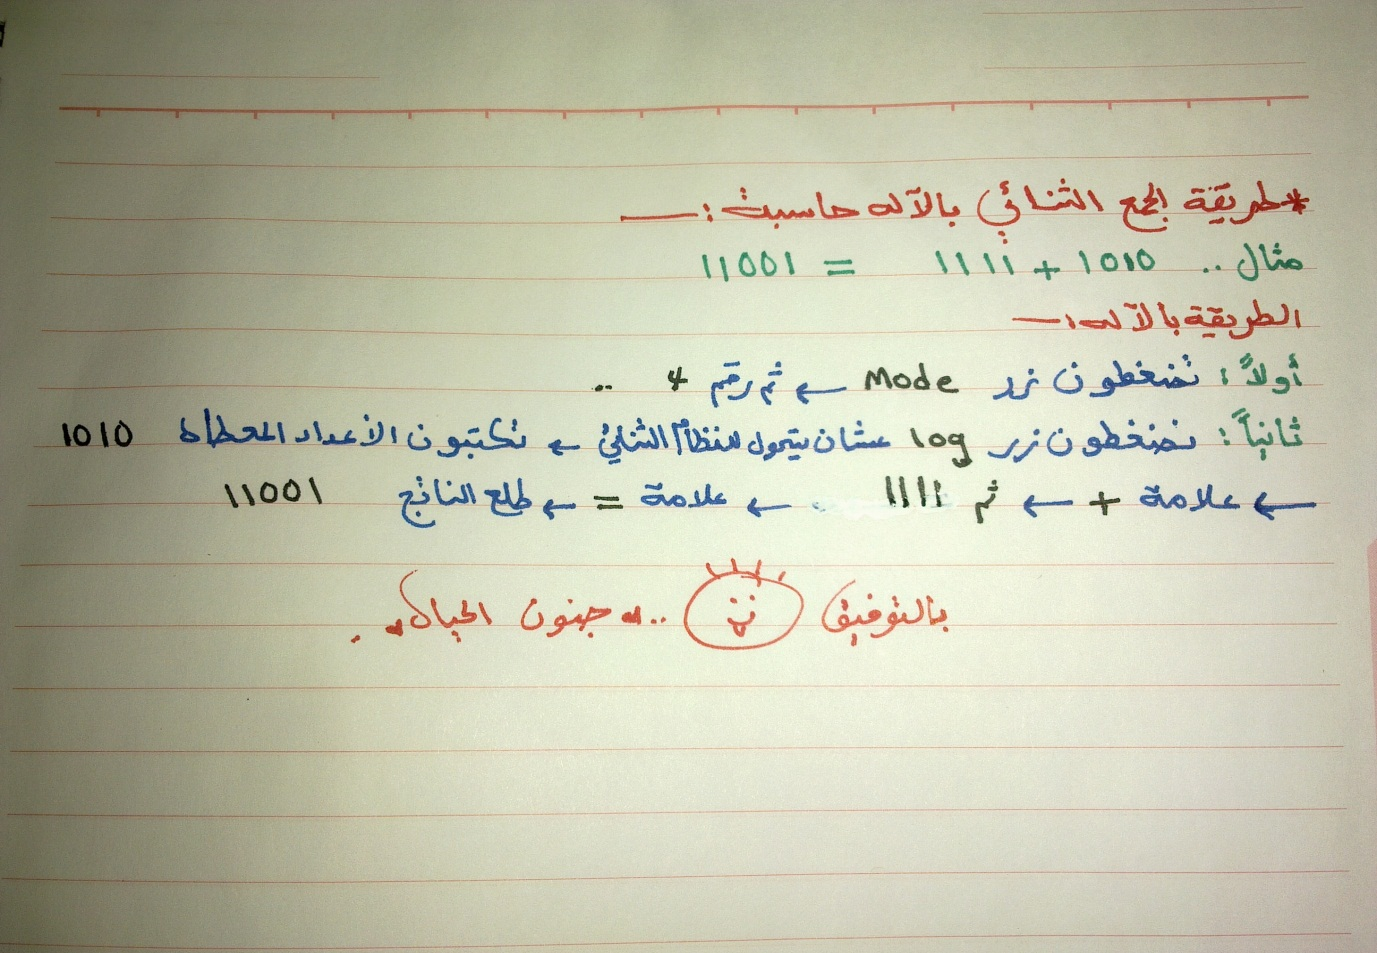 *طريقة الجمع الثنائي بالآله حاسبة :ــ
مثال .. 1010 + 1111 = 11001
الطريقة بالآله :ــ
أولاً : تضغطون زر Mode ← ثم رقم 4 ..
ثانياً : تضغطون زر log عشان يتحول للنظام الثنائي ← تكتبون الأعداد المعطاه 1010
← علامة + ← ثم 1111 ← علامة = ← طلع الناتج 11001
بالتوفيق .. جنون الحياه ..